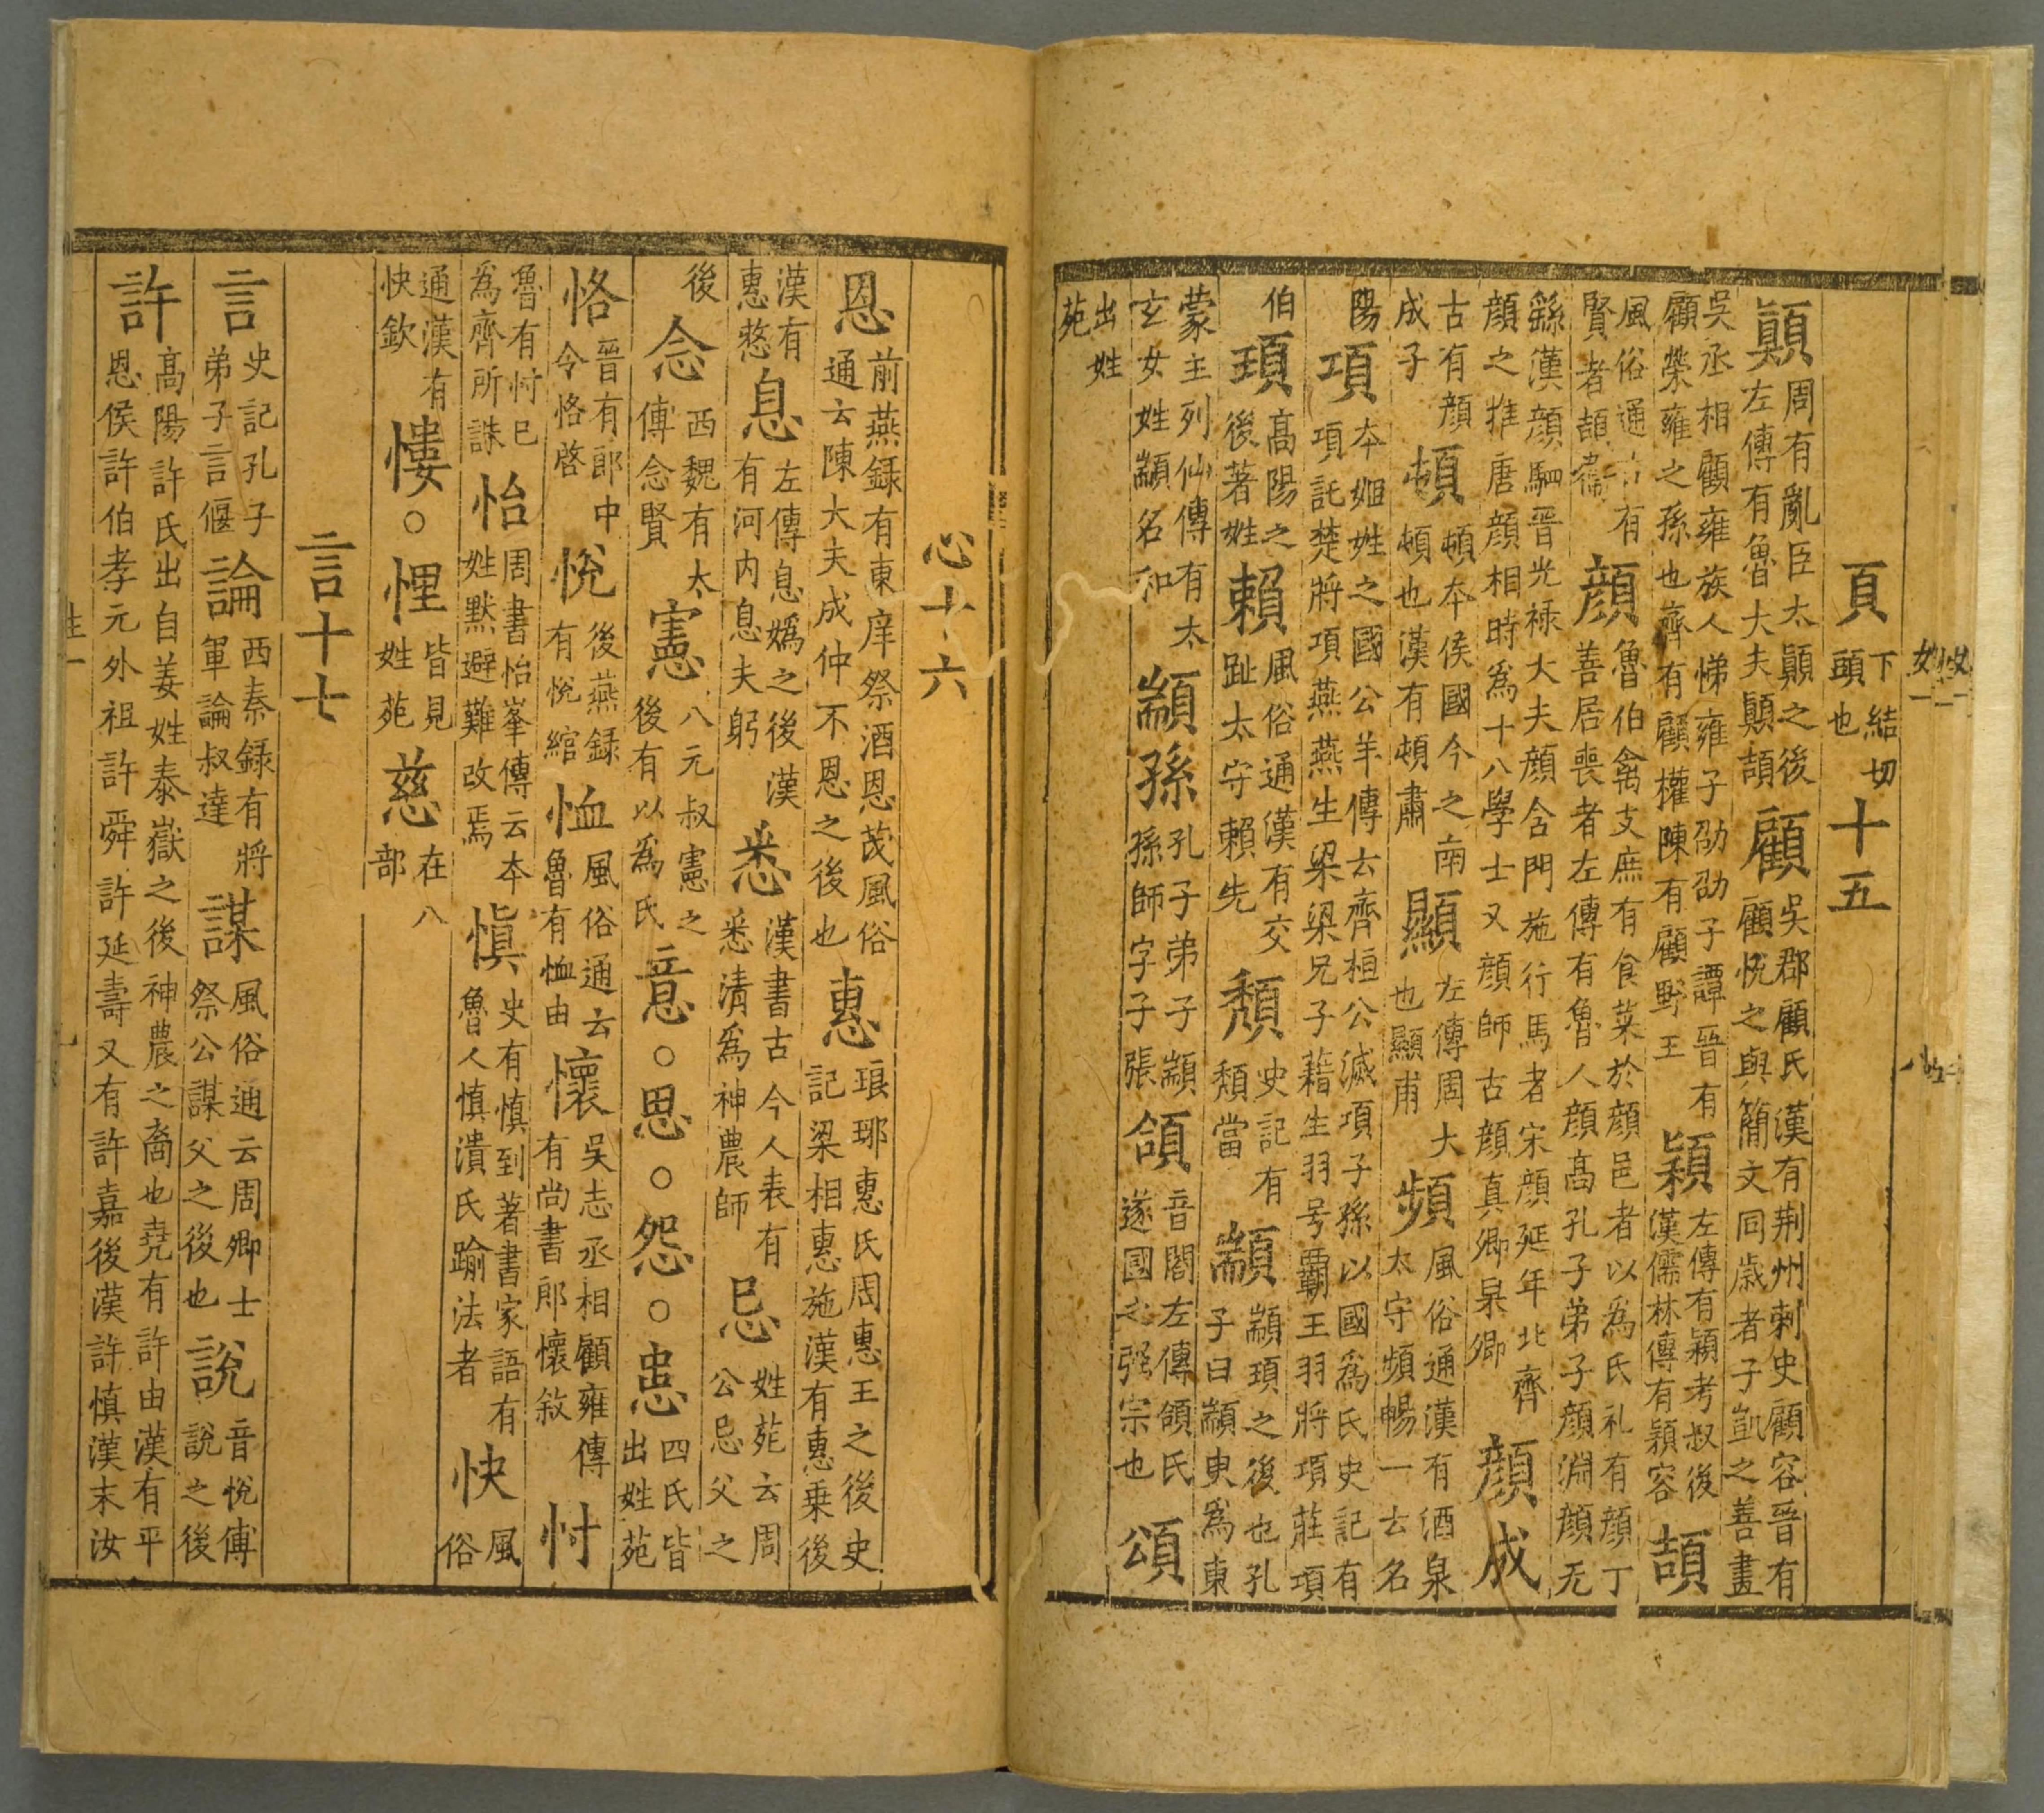 頁下結切頭也十五
顚周有亂臣太顚之後左傳有魯大夫顚頡顧吳郡顧氏漢有荆州刺史顧容晉有顧悅之與簡文同歲者子凱之善畫
吳丞相顧雍族人悌雍子劭劭子譚晉有顧榮雍之孫也齊有顧權陳有顧野王穎左傳有穎考叔後漢儒林傳有穎容頡
風俗通有賢者頡顔魯伯禽支庶有食菜於顔邑者以爲氏礼有顔丁善居喪者左傳有魯人顔高孔子弟子顔淵顔无
繇漢顔駟晉光祿大夫顔含門施行馬者宋顔延年北齊顔之推唐顔相時爲十八學士又顔師古顔真卿杲卿顔成
古有顔成子頓頓本侯國今之南頓也漢有頓肅顯左傳周大也顯甫頻風俗通漢有酒泉太守頻暢一去名
陽項本姬姓之國公羊傳云齊桓公滅項子孫以國爲氏史記有項託楚將項燕燕生梁梁兄子藉生羽号霸王羽將項莊項
伯頊高陽之後著姓賴風俗通漢有交趾太守賴先頽史記有頽當顓顓頊之後也孔子曰顓臾爲東
蒙主列仙傳有太玄女姓顓名和顓孫孔子弟子顓孫師字子張頜音閤左傳頜氏遂國之強宗也頌
出姓苑
心十六
恩前燕録有東庠祭酒恩茂風俗通云陳大夫成仲不恩之後也惠琅琊惠氏周惠王之後史記梁相惠施漢有惠乗後
漢有惠憗息左傳息嬀之後漢有河内息夫躬悉漢書古今人表有悉清爲神農師忌姓苑云周公忌父之
後念西魏有太傅念賢憲八元叔憲之後有以爲氏意○思○怨○患四氏皆出姓苑
恪晉有郎中令恪啓悅後燕録有悅綰恤風俗通云魯有恤由懷吳志丞相顧雍傳有尚書郎懷敘忖
魯有忖巳爲齊所誅怡周書怡峯傳云本姓默避難改焉慎史有慎到著書家語有魯人慎潰氏踰法者快風俗
通漢有快欽慺○悝皆見姓苑慈在八部
言十七
言史記孔子弟子言偃論西秦録有將軍論叔達謀風俗通云周卿士祭公謀父之後也說音悅傅說之後
許高陽許氏出自姜姓泰嶽之後神農之裔也堯有許由漢有平恩侯許伯孝元外祖許舜許延壽又有許嘉後漢許慎漢末汝